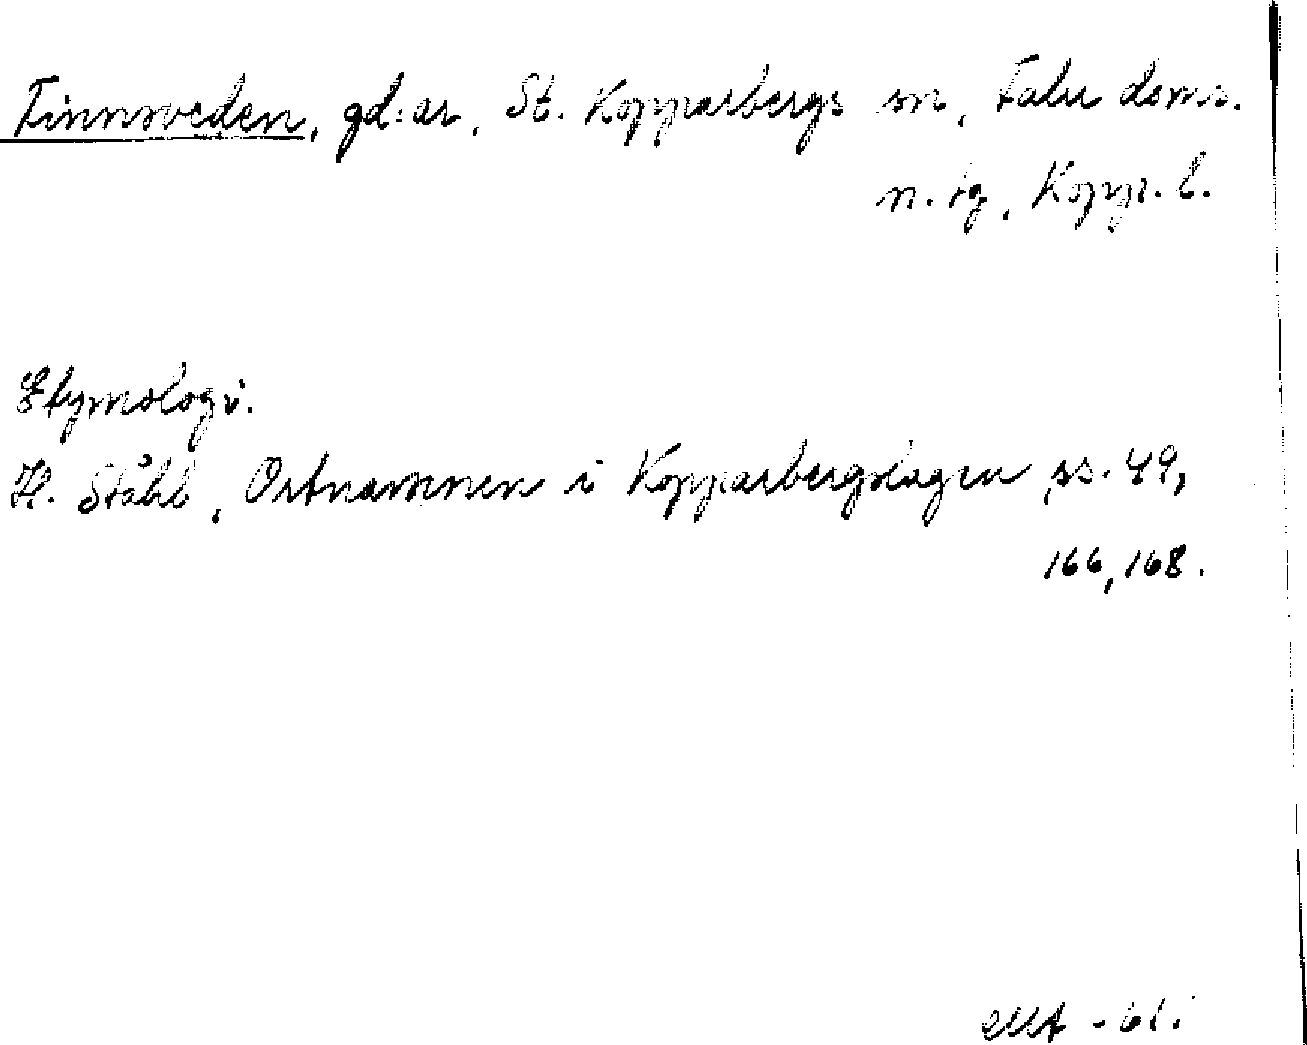 Finnsveden, gd:ar, St. Kopparbergs sn, Falu doms.
n. tg, Kopp. l.
Etymologi.
H. Ståhl, Ortnamnen i Kopparbergslagen ss. 49,
166, 168.
61.